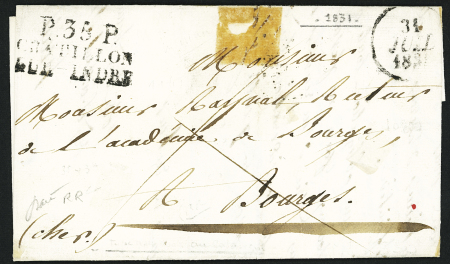 P.35.P.
CHATILLON
SUR-INDRE
1831.
31
JUIL
1831
Monsieur
Monsieur Raynal, Recteur
de l'académie de Bourges,
A Bourges.
(cher.)